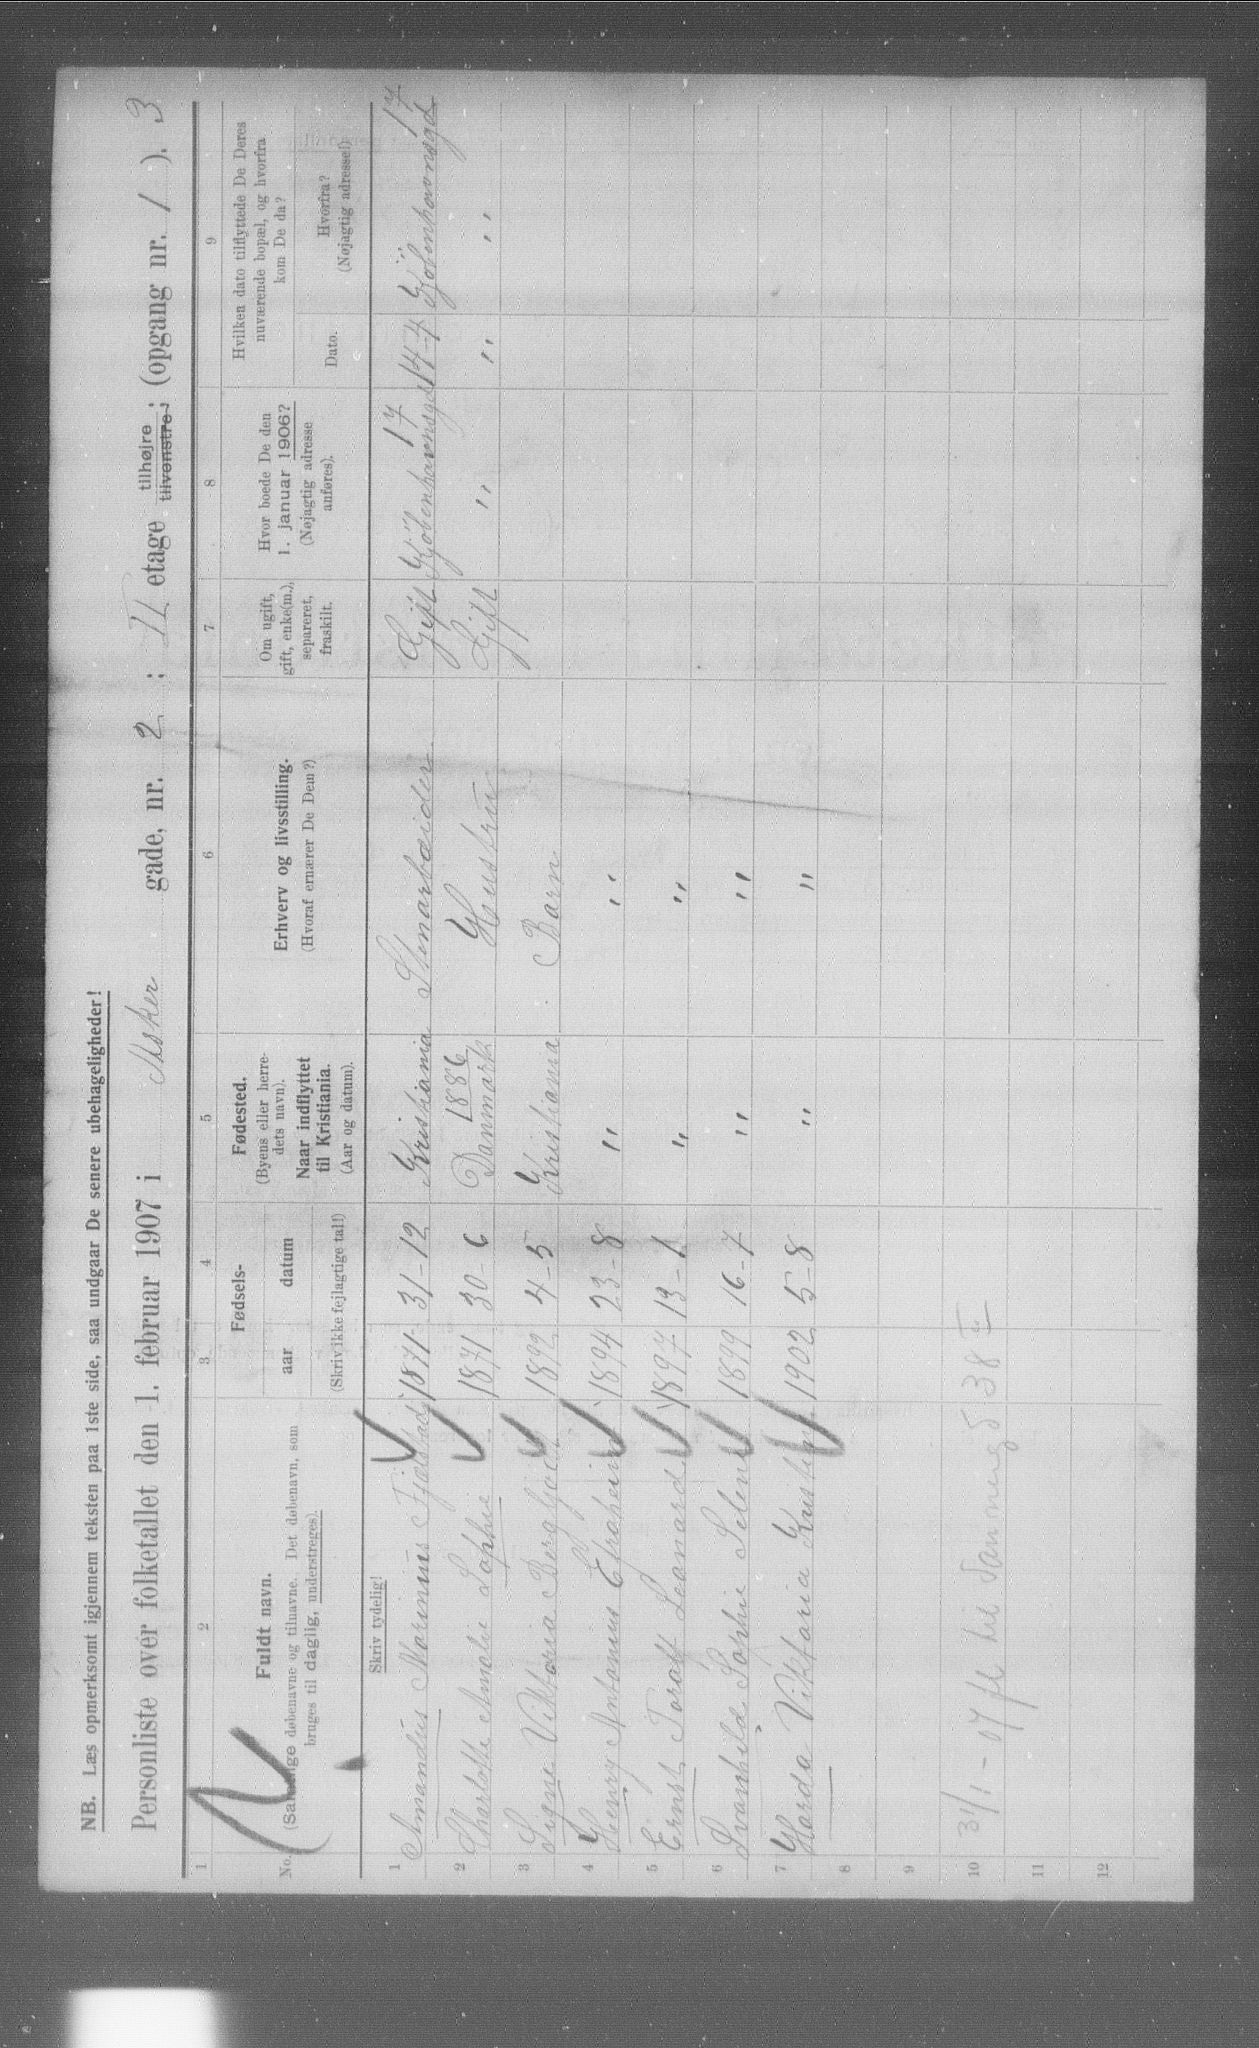 NB. Læs opmerksomt igjennem teksten paa 1ste side, saa undgaar De senere ubehageligheder!
Personliste over folketallet den 1. februar 1907 i Asker gade, nr. 2 ; II etage tilhøjre ; tilvenstre ; (opgang nr. 1 ). 3
1 2 3 4 5 6 7 8 9
No.
Fuldt navn.
(Samtlige døbenavne og tilnavne. Det døbenavn, som
bruges til daglig, understreges).
Fødsels-
aar datum
(Skriv ikke fejlagtige tal!)
Fødested.
(Byens eller herre-
dets navn).
Naar indflyttet
til Kristiania.
(Aar og datum).
Erhverv og livsstilling.
(Hvoraf ernærer De Dem?)
Om ugift,
gift, enke(m.),
separeret,
fraskilt.
Hvor boede De den
1. januar 1906?
(Nøjagtig adresse
anføres).
Hvilken dato tilflyttede De Deres
nuværende bopæl, og hvorfra
kom De da?
Dato.
Hvorfra?
(Nøjagtig adresse!)
Skriv tydelig!
1 Amandus Marinius Fjælstad 1871 31-12 Kristiania Stenarbeider Gift Kjøbenhavnsgd 17 14-4 Kjøbenhavnsgd 17
2 Charlotte Amalie Sophie 1871 30-6 1886 Danmark Hustru Gift " " "
3 Signe Viktoria Bergljot 1892 4-5 Kristiania Barn
4 Henry Antonius 1894 23-8 " "
5 Ernst Toralf Leonard 1897 13-1 " "
6 Svanhild Sophie Selene 1899 16-7 " "
7 Harda Viktoria Kristine 1902 5-8 " "
8
9
10 31/1-07 fl til 38 II
11
12